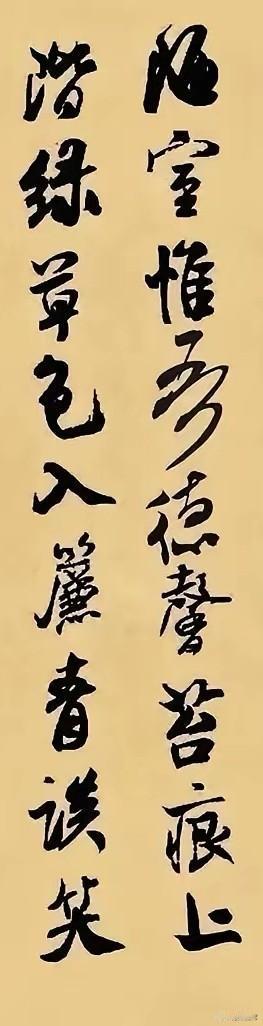 陋室惟吾德馨苔痕上
階緑草色入簾青談笑